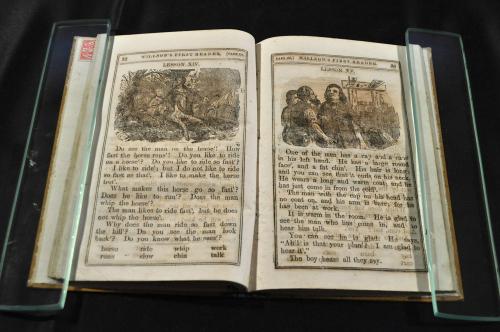 32 WILLSON'S FIRST READER.
LESSON XIV.
Do see the man on the horse! How
fast the horse runs! Do you like to ride
on a horse? Do you like to ride so fast?
I like to ride; but I do not like to ride
so fast as that. I like to make the horse
trot.
What makes this horse go so fast?
Does he like to run? Does the man
whip the horse?
The man likes to ride fast, but he does
not whip the horse.
Why does the man ride so fast down
the hill? Do you see the man look
back? Do you know what he sees?
horse ride whip work
runs slow chin talk
WILLSON'S FIRST READER. 33
LESSON XV.
One of the men has a
in his left hand. He has a large round
face, and a fat chin. His hair is long;
and you can see that it curls on his neck.
He wears a long and warm coat; and he
has just come in from the cold.
The man with the cap on his head has
no coat on, and his arm is bare; for he
has been at work.
It is warm in the room. He is glad to
see the man who has come in, and to
hear him talk.
You can see he is glad. He says,
"Ah! is that your plan? I am glad to
hear it."
The boy hears all they say.